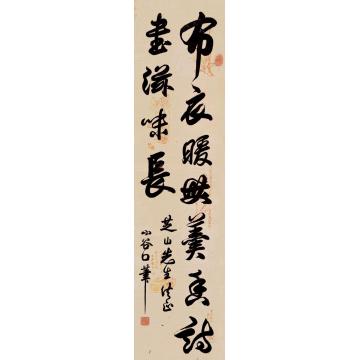 布衣暖無羹香詩
書滋味長
芝山先生法正
小谷口華